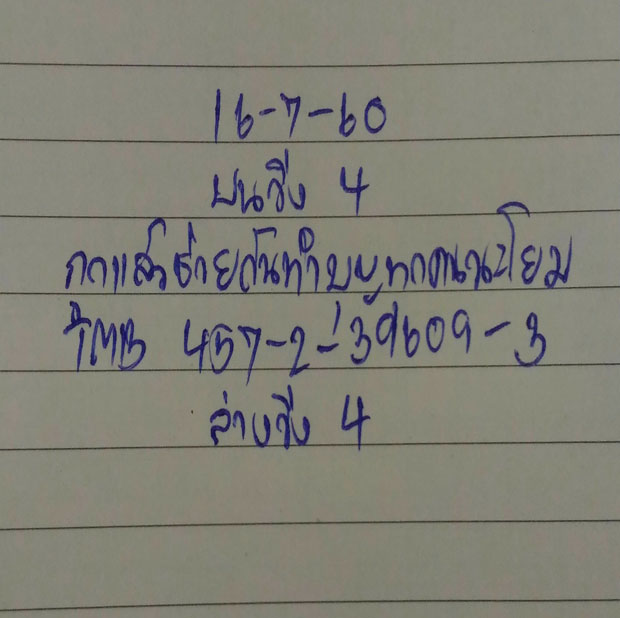 16-7-60
บนวิ่ง 4
ถูกแล้วช่วยกันทำบุญทุกคนนะโยม
TMB 457-2-39609-3
ล่างวิ่ง 4